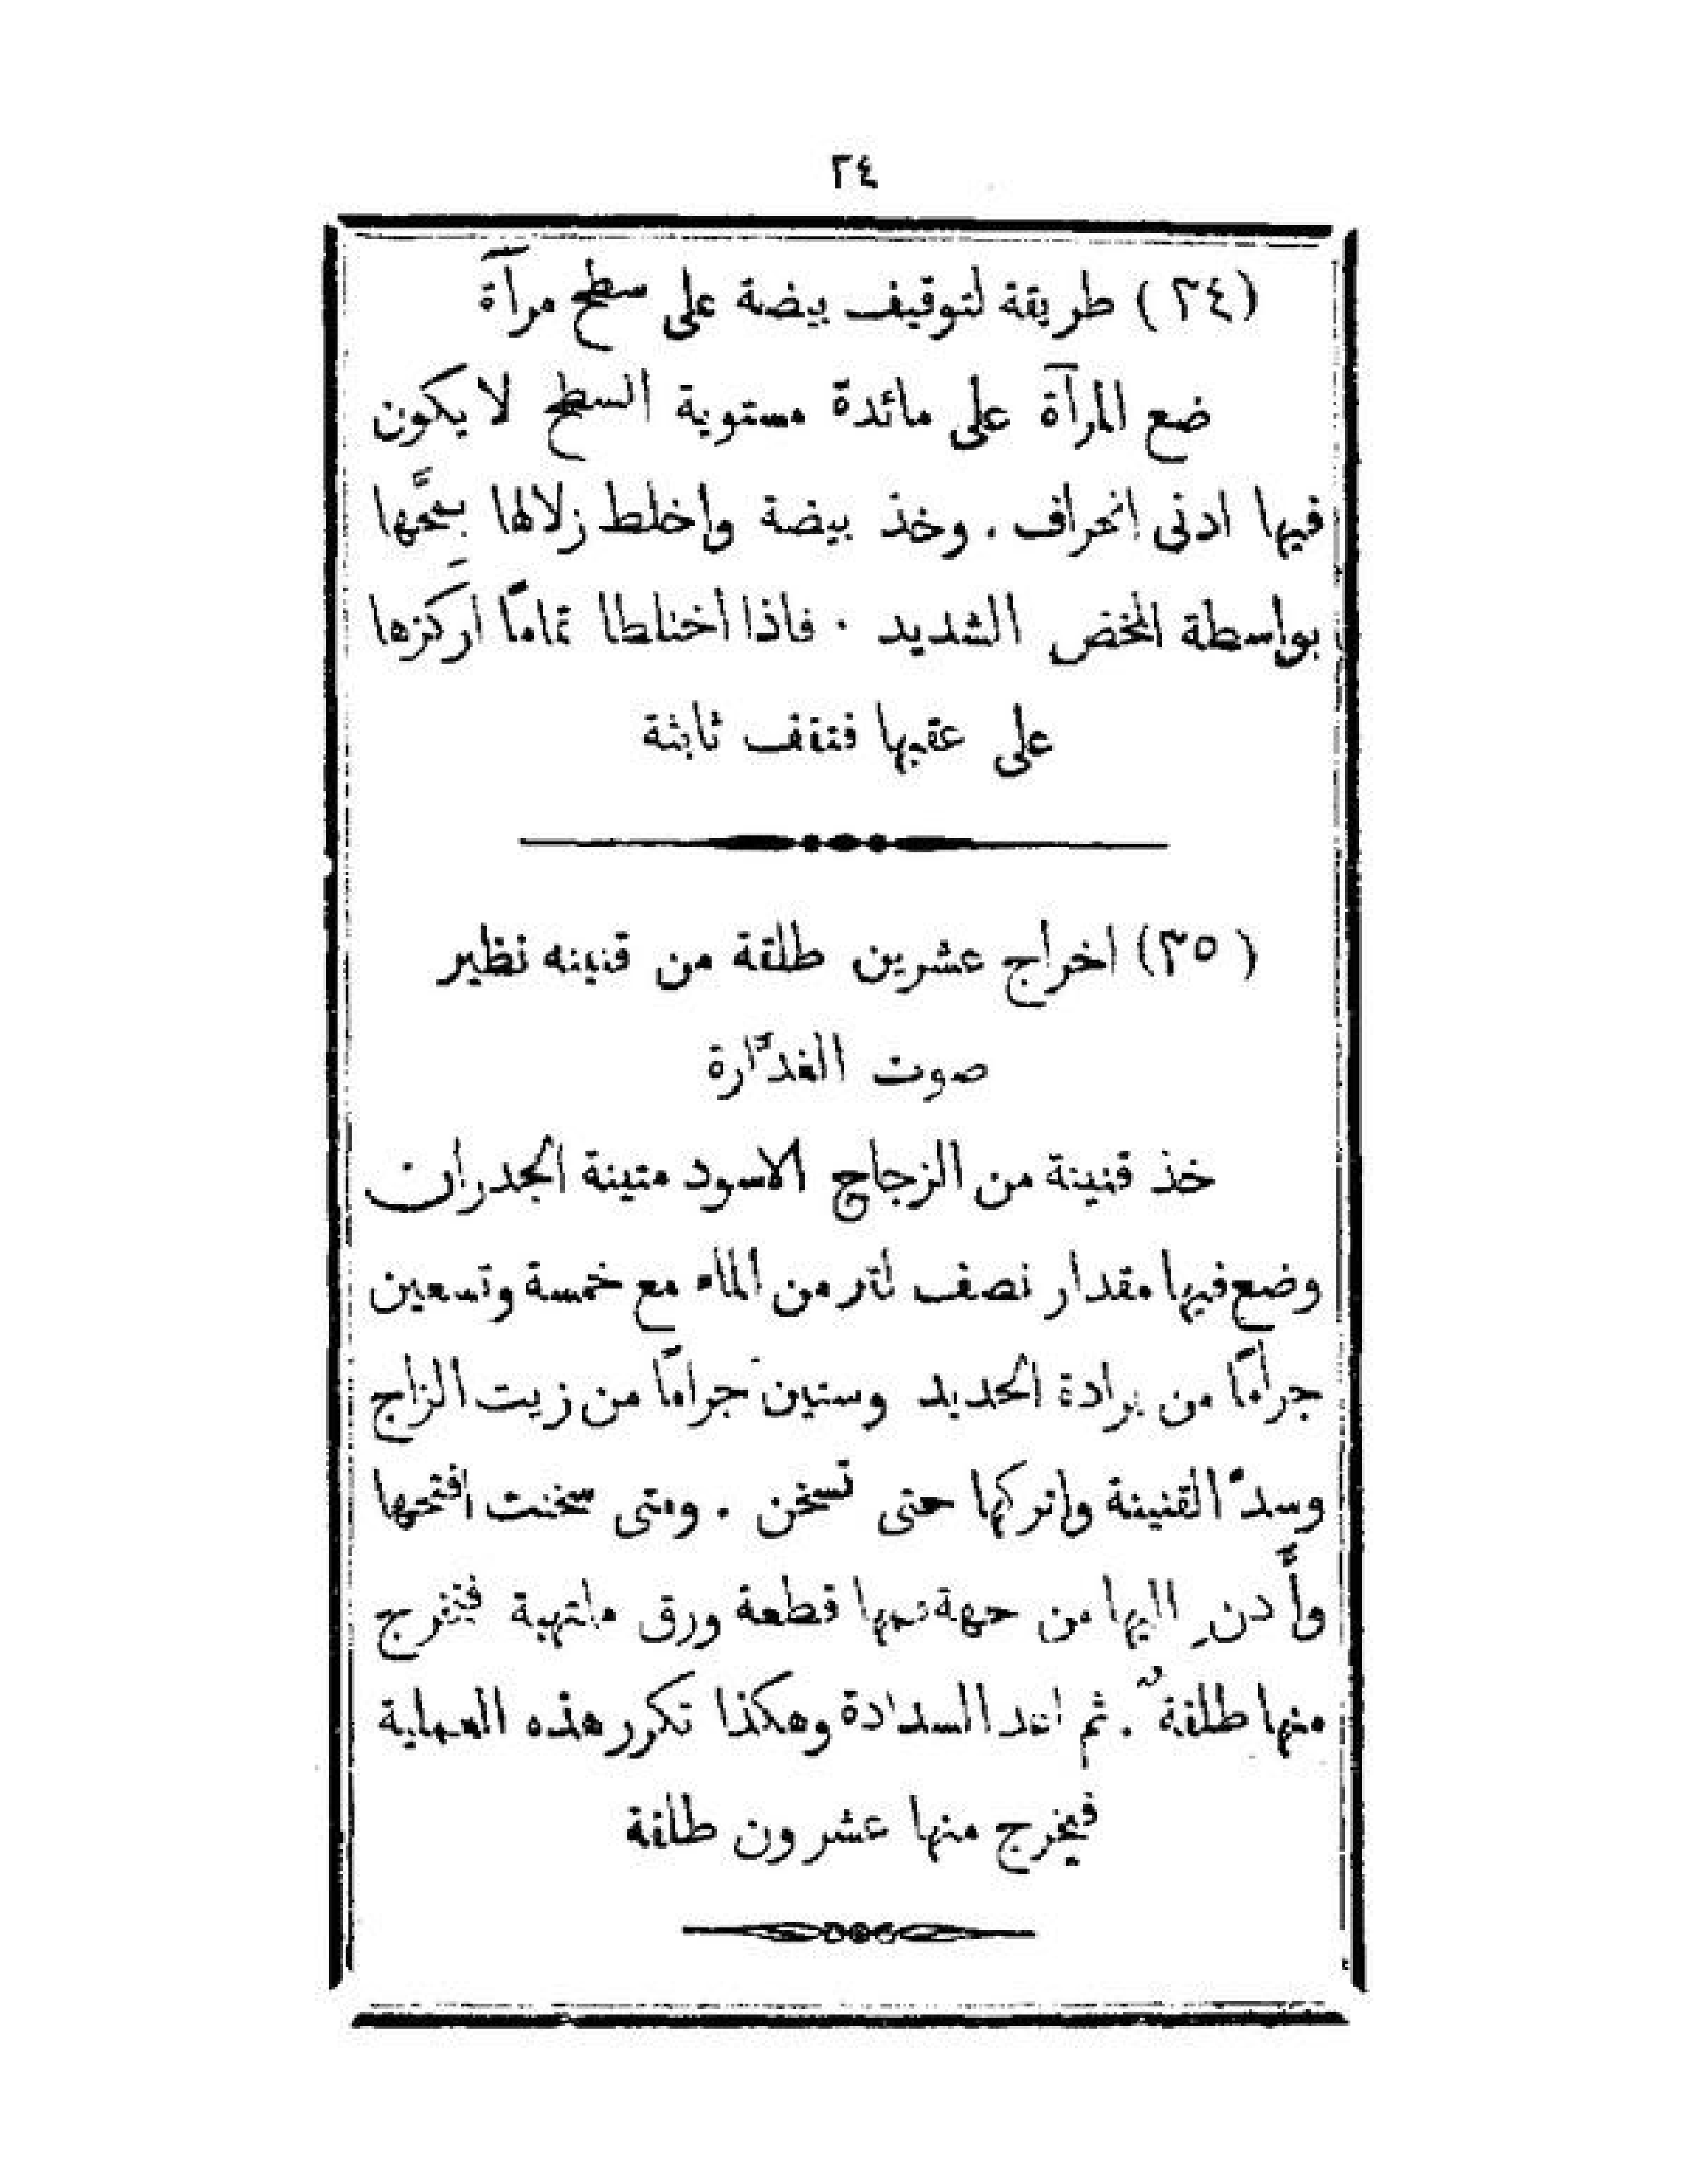 ٢٤
(٣٤) طريقة لتوقيف بيضة على سطح مرآة
ضع المرآة على مائدة مستوية السطح لا يكون
فيها ادنى انحراف . وخذ بيضة واخلط زلالها بِمحَّها
بواسطة المخض الشديد . فاذا اختلطا تمامًا اركزها
على عقبها فتقف ثابتة
(٣٥) اخراج عشرين طلقة من قنينه نظير
صوت الغدَّارة
خذ قنينة من الزجاج الاسود متينة الجدران
وضع فيها مقدار نصف لتر من الماء مع خمسة وتسعين
جرامًا من برادة الحديد وستين جرامًا من زيت الزاج
وسدّ القنينة واتركها حتى تسخن . ومتى سخنت افتحها
وأَدنِ اليها من جهة فمها قطعة ورق ملتهبة فتخرج
منها طلقةٌ . ثم السدادة وهكذا تكرر هذه العملية
فيخرج منها عشرون طلقة